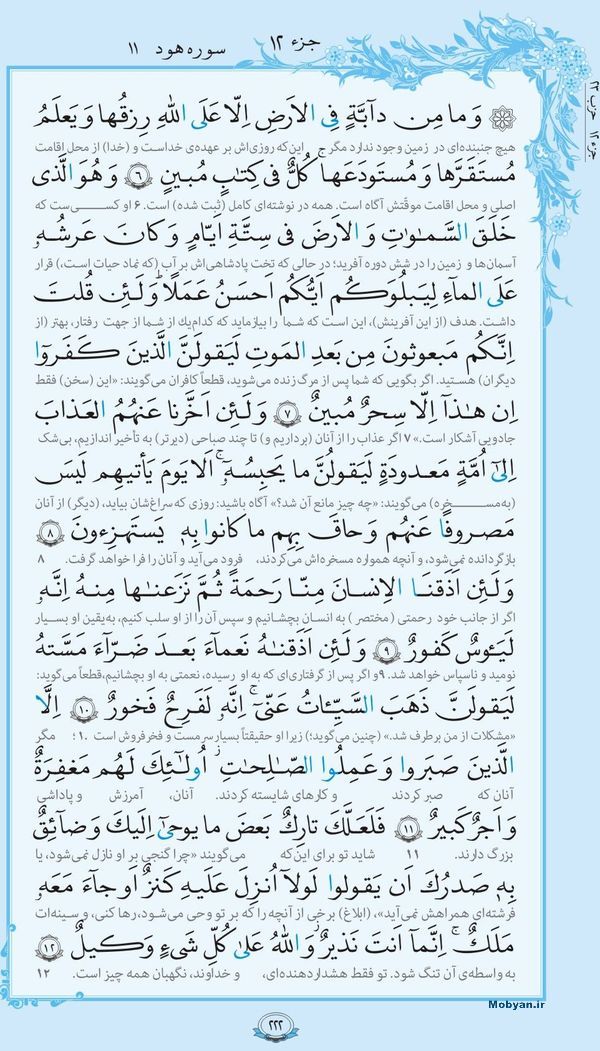 جزء ۱۲
سوره هود ۱۱
حزب ۲۳
جزء ۱۲
وَ ما مِن دآبَّةٍ فِی الاَرضِ اِلّا عَلَی اللهِ رِزقُها وَ یَعلَمُ
هیچ جنبنده‌ای در زمین وجود ندارد مگر این‌که روزی‌اش بر عهده‌ی خداست و (خدا) از محل اقامت
مُستَقَرَّها وَ مُستَودَعَها ۚ کُلٌّ فی کِتابٍ مُبینٍ ﴿۶﴾ وَ هُوَ الَّذی
اصلی و محل اقامت موقّتش آگاه است. همه در نوشته‌ای کامل (ثبت شده) است. ۶ او کسی‌ست که
خَلَقَ السَّماواتِ وَ الاَرضَ فی سِتَّةِ اَیّامٍ وَ کانَ عَرشُهو
آسمان‌ها و زمین را در شش دوره آفرید؛ در حالی که تخت پادشاهی‌اش بر آب (که نماد حیات است،) قرار
عَلَی المآءِ لِیَبلُوَکُم اَیُّکُم اَحسَنُ عَمَلًا ۗ وَ لَئِن قُلتَ
داشت. هدف (از این آفرینش)، این است که شما را بیازماید که کدام‌یك از شما از جهت رفتار، بهتر (از
اِنَّکُم مَبعوثونَ مِن بَعدِ المَوتِ لَیَقولَنَّ الَّذینَ کَفَروا
دیگران) هستید. اگر بگویی که شما پس از مرگ زنده می‌شوید، قطعاً کافران می‌گویند: «این (سخن) فقط
اِن هٰذآ اِلّا سِحرٌ مُبینٌ ﴿۷﴾ وَ لَئِن اَخَّرنا عَنهُمُ العَذابَ
جادویی آشکار است.» ۷ اگر عذاب را از آنان (برداریم و) تا چند صباحی (دیرتر) به تأخیر اندازیم، بی‌شک
اِلیٰٓ اُمَّةٍ مَعدودَةٍ لَیَقولُنَّ ما یَحبِسُهو ۗ اَلا یَومَ یَأتیهِم لَیسَ
(به‌مسخره) می‌گویند: «چه چیز مانع آن شد؟» آگاه باشید: روزی که سراغ‌شان بیاید، (دیگر) از آنان
مَصروفًا عَنهُم وَ حاقَ بِهِم ما کانوا بِهی یَستَهزِءونَ ﴿۸﴾
بازگردانده نمی‌شود، و آنچه همواره مسخره‌اش می‌کردند، فرود می‌آید و آنان را فرا خواهد گرفت. ۸
وَ لَئِن اَذَقنَا الاِنسانَ مِنّا رَحمَةً ثُمَّ نَزَعناها مِنهُ اِنَّهو
اگر از جانب خود رحمتی (مختصر) به انسان بچشانیم و سپس آن را از او سلب کنیم، به‌یقین او بسیار
لَیَئوسٌ کَفورٌ ﴿۹﴾ وَ لَئِن اَذَقناهُ نَعمآءَ بَعدَ ضَرّآءَ مَسَّتهُ
نومید و ناسپاس خواهد شد. ۹ و اگر پس از گرفتاری‌ای که به او رسیده، نعمتی به او بچشانیم، قطعاً می‌گوید:
لَیَقولَنَّ ذَهَبَ السَّیِّئاتُ عَنّی ۚ اِنَّهو لَفَرِحٌ فَخورٌ ﴿۱۰﴾ اِلَّا
«مشکلات از من برطرف شد.» (چنین می‌گوید؛) زیرا او حقیقتاً بسیار سرمست و فخرفروش است ۱۰؛ مگر
الَّذینَ صَبَروا وَ عَمِلُوا الصّالِحاتِ اُولٰٓئِكَ لَهُم مَغفِرَةٌ
آنان که صبر کردند و کارهای شایسته کردند. آنان، آمرزش و پاداشی
وَ اَجرٌ کَبیرٌ ﴿۱۱﴾ فَلَعَلَّكَ تارِكٌ بَعضَ ما یوحیٰٓ اِلَیكَ وَ ضآئِقٌ
بزرگ دارند. ۱۱ شاید تو برای این‌که می‌گویند «چرا گنجی بر او نازل نمی‌شود، یا
بِهی صَدرُكَ اَن یَقولوا لَولآ اُنزِلَ عَلَیهِ کَنزٌ اَو جآءَ مَعَهو
فرشته‌ای همراهش نمی‌آید»، (ابلاغ) برخی از آنچه را که بر تو وحی می‌شود، رها کنی، و سینه‌ات
مَلَكٌ ۚ اِنَّمآ اَنتَ نَذیرٌ ۚ وَ اللهُ عَلیٰ کُلِّ شَیءٍ وَکیلٌ ﴿۱۲﴾
به واسطه‌ی آن تنگ شود. تو فقط هشداردهنده‌ای، و خداوند، نگهبان همه چیز است. ۱۲
Mobyan.ir
۲۲۲